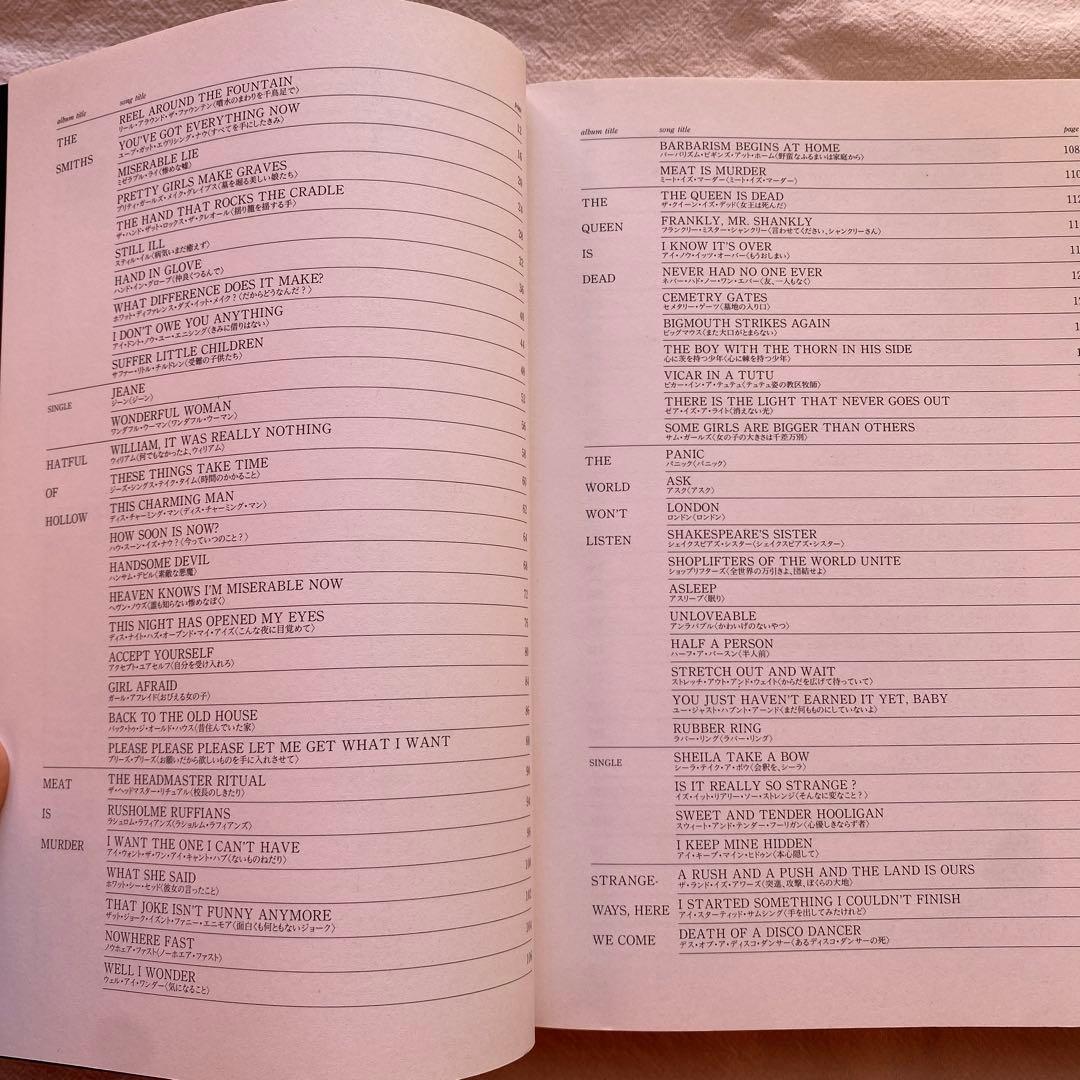 album title song title page
THE SMITHS
REEL AROUND THE FOUNTAIN 12
リール・アラウンド・ザ・ファウンテン〈噴水のまわりを千鳥足で〉
YOU'VE GOT EVERYTHING NOW 16
ユーブ・ガット・エヴリシング・ナウ〈すべてを手にしたきみ〉
MISERABLE LIE 20
ミゼラブル・ライ〈惨めな嘘〉
PRETTY GIRLS MAKE GRAVES 24
プリティ・ガールズ・メイク・グレイブス〈墓を掘る美しい娘たち〉
THE HAND THAT ROCKS THE CRADLE 28
ザ・ハンド・ザット・ロックス・ザ・クレオール〈揺り籠を揺する手〉
STILL ILL 32
スティル・イル〈病気いまだ癒えず〉
HAND IN GLOVE 36
ハンド・イン・グローブ〈仲良くつるんで〉
WHAT DIFFERENCE DOES IT MAKE? 40
ホワット・ディファレンス・ダズ・イット・メイク?〈だからどうなんだ?〉
I DON'T OWE YOU ANYTHING 44
アイ・ドント・ノウ・ユー・エニシング〈きみに借りはない〉
SUFFER LITTLE CHILDREN 48
サファー・リトル・チルドレン〈受難の子供たち〉
SINGLE
JEANE 52
ジーン〈ジーン〉
WONDERFUL WOMAN 56
ワンダフル・ウーマン〈ワンダフル・ウーマン〉
HATFUL OF HOLLOW
WILLIAM, IT WAS REALLY NOTHING 58
ウィリアム〈何でもなかったよ、ウィリアム〉
THESE THINGS TAKE TIME 60
ジーズ・シングス・テイク・タイム〈時間のかかること〉
THIS CHARMING MAN 62
ディス・チャーミング・マン〈ディス・チャーミング・マン〉
HOW SOON IS NOW? 64
ハウ・スーン・イズ・ナウ?〈今っていつのこと?〉
HANDSOME DEVIL 68
ハンサム・デビル〈素敵な悪魔〉
HEAVEN KNOWS I'M MISERABLE NOW 72
ヘヴン・ノウズ〈誰も知らない惨めなぼく〉
THIS NIGHT HAS OPENED MY EYES 76
ディス・ナイト・ハズ・オープンド・マイ・アイズ〈こんな夜に目覚めて〉
ACCEPT YOURSELF 80
アクセプト・ユアセルフ〈自分を受け入れろ〉
GIRL AFRAID 84
ガール・アフレイド〈おびえる女の子〉
BACK TO THE OLD HOUSE 86
バック・トゥ・ジ・オールド・ハウス〈昔住んでいた家〉
PLEASE PLEASE PLEASE LET ME GET WHAT I WANT 88
プリーズ・プリーズ〈お願いだから欲しいものを手に入れさせて〉
MEAT IS MURDER
THE HEADMASTER RITUAL 90
ザ・ヘッドマスター・リチュアル〈校長のしきたり〉
RUSHOLME RUFFIANS 94
ラシュロム・ラフィアンズ〈ラショルム・ラフィアンズ〉
I WANT THE ONE I CAN'T HAVE 98
アイ・ウォント・ザ・ワン・アイ・キャント・ハブ〈ないものねだり〉
WHAT SHE SAID 100
ホワット・シー・セッド〈彼女の言ったこと〉
THAT JOKE ISN'T FUNNY ANYMORE 102
ザット・ジョーク・イズント・ファニー・エニモア〈面白くも何ともないジョーク〉
NOWHERE FAST 104
ノウホェア・ファスト〈ノーホエア・ファスト〉
WELL I WONDER 106
ウェル・アイ・ワンダー〈気になること〉
album title song title page
BARBARISM BEGINS AT HOME 108
バーバリズム・ビギンズ・アット・ホーム〈野蛮なふるまいは家庭から〉
MEAT IS MURDER 110
ミート・イズ・マーダー〈ミート・イズ・マーダー〉
THE QUEEN IS DEAD
THE QUEEN IS DEAD 112
ザ・クイーン・イズ・デッド〈女王は死んだ〉
FRANKLY, MR. SHANKLY 11
フランクリー・ミスター・シャンクリー〈言わせてください、シャンクリーさん〉
I KNOW IT'S OVER 11
アイ・ノウ・イッツ・オーバー〈もうおしまい〉
NEVER HAD NO ONE EVER 12
ネバー・ハド・ノー・ワン・エバー〈友、一人もなく〉
CEMETRY GATES
セメタリー・ゲーツ〈墓地の入り口〉
BIGMOUTH STRIKES AGAIN
ビッグマウス〈また大口がとまらない〉
THE BOY WITH THE THORN IN HIS SIDE
心に茨を持つ少年〈心に棘を持つ少年〉
VICAR IN A TUTU
ビカー・イン・ア・テュテュ〈テュテュ姿の教区牧師〉
THERE IS THE LIGHT THAT NEVER GOES OUT
ゼア・イズ・ア・ライト〈消えない光〉
SOME GIRLS ARE BIGGER THAN OTHERS
サム・ガールズ〈女の子の大きさは千差万別〉
THE WORLD WON'T LISTEN
PANIC
パニック〈パニック〉
ASK
アスク〈アスク〉
LONDON
ロンドン〈ロンドン〉
SHAKESPEARE'S SISTER
シェイクスピアズ・シスター〈シェイクスピアズ・シスター〉
SHOPLIFTERS OF THE WORLD UNITE
ショップリフターズ〈全世界の万引きよ、団結せよ〉
ASLEEP
アスリープ〈眠り〉
UNLOVEABLE
アンラバブル〈かわいげのないやつ〉
HALF A PERSON
ハーフ・ア・パースン〈半人前〉
STRETCH OUT AND WAIT
ストレッチ・アウト・アンド・ウェイト〈からだを広げて待っていて〉
YOU JUST HAVEN'T EARNED IT YET, BABY
ユー・ジャスト・ハブント・アーンド〈まだ何もものにしていないよ〉
RUBBER RING
ラバー・リング〈ラバー・リング〉
SINGLE
SHEILA TAKE A BOW
シーラ・テイク・ア・ボウ〈会釈を、シーラ〉
IS IT REALLY SO STRANGE?
イズ・イット・リアリー・ソー・ストレンジ〈そんなに変なこと?〉
SWEET AND TENDER HOOLIGAN
スウィート・アンド・テンダー・フーリガン〈心優しきならず者〉
I KEEP MINE HIDDEN
アイ・キープ・マイン・ヒドゥン〈本心隠して〉
STRANGE- WAYS, HERE WE COME
A RUSH AND A PUSH AND THE LAND IS OURS
ザ・ランド・イズ・アワーズ〈突進、攻撃、ぼくらの大地〉
I STARTED SOMETHING I COULDN'T FINISH
アイ・スターティッド・サムシング〈手を出してみたけれど〉
DEATH OF A DISCO DANCER
デス・オブ・ア・ディスコ・ダンサー〈あるディスコ・ダンサーの死〉